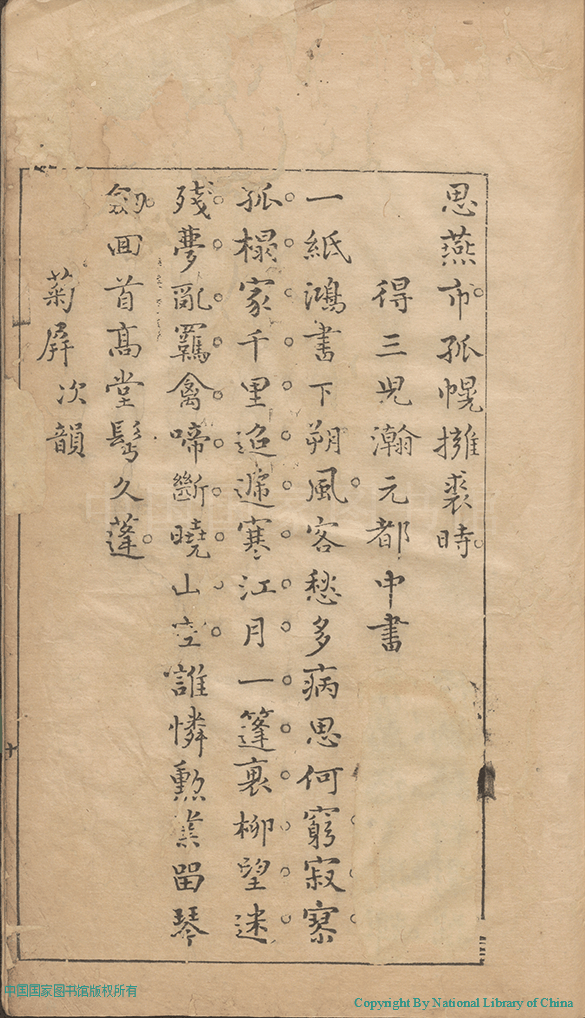 思燕市孤幌擁裘時
得三兒瀚元都中書
一紙鴻書下朔風客愁多病思何窮寂寞
孤榻家千里迢遞寒江月一篷裹柳望迷
殘夢亂羈禽啼斷曉山空誰憐勲業留琴
劔回首髙堂鬓久蓬
菊屏次韻
中国国家图书馆版权所有
Copyright By National Library of China